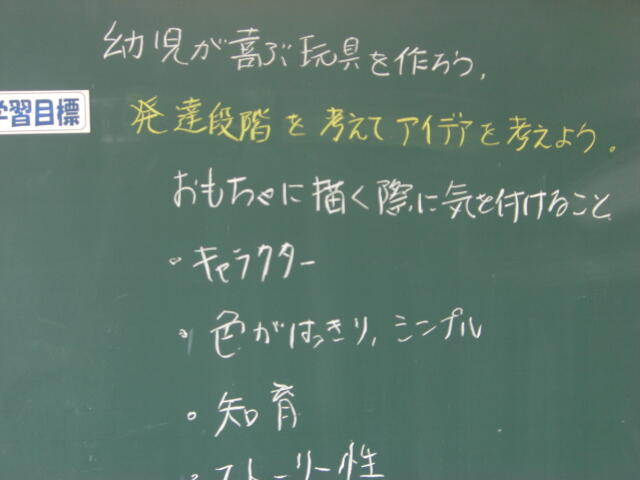 幼児が喜ぶ玩具を作ろう。
学習目標
発達段階を考えてアイデアを考えよう。
おもちゃに描く際に気を付けること
・キャラクター
・色がはっきり,シンプル
・知育
・ストーリー性